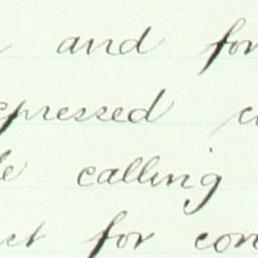 and for
pressed
calling
for con